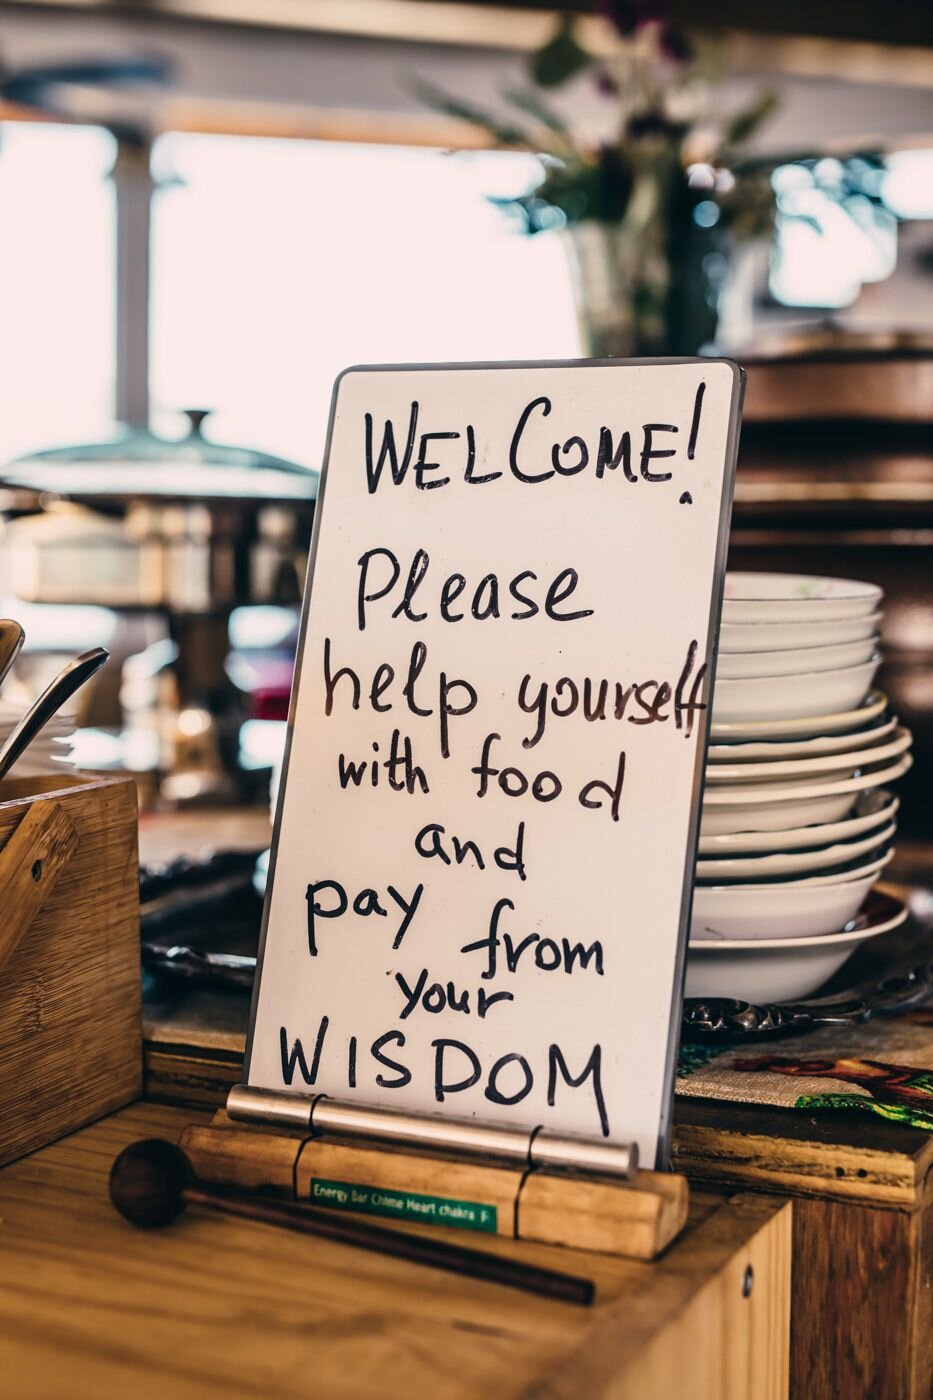 WELCOME!
Please
help yourself
with food
and
pay from
your
WISDOM
Energy Bar Chime Heart chakra F